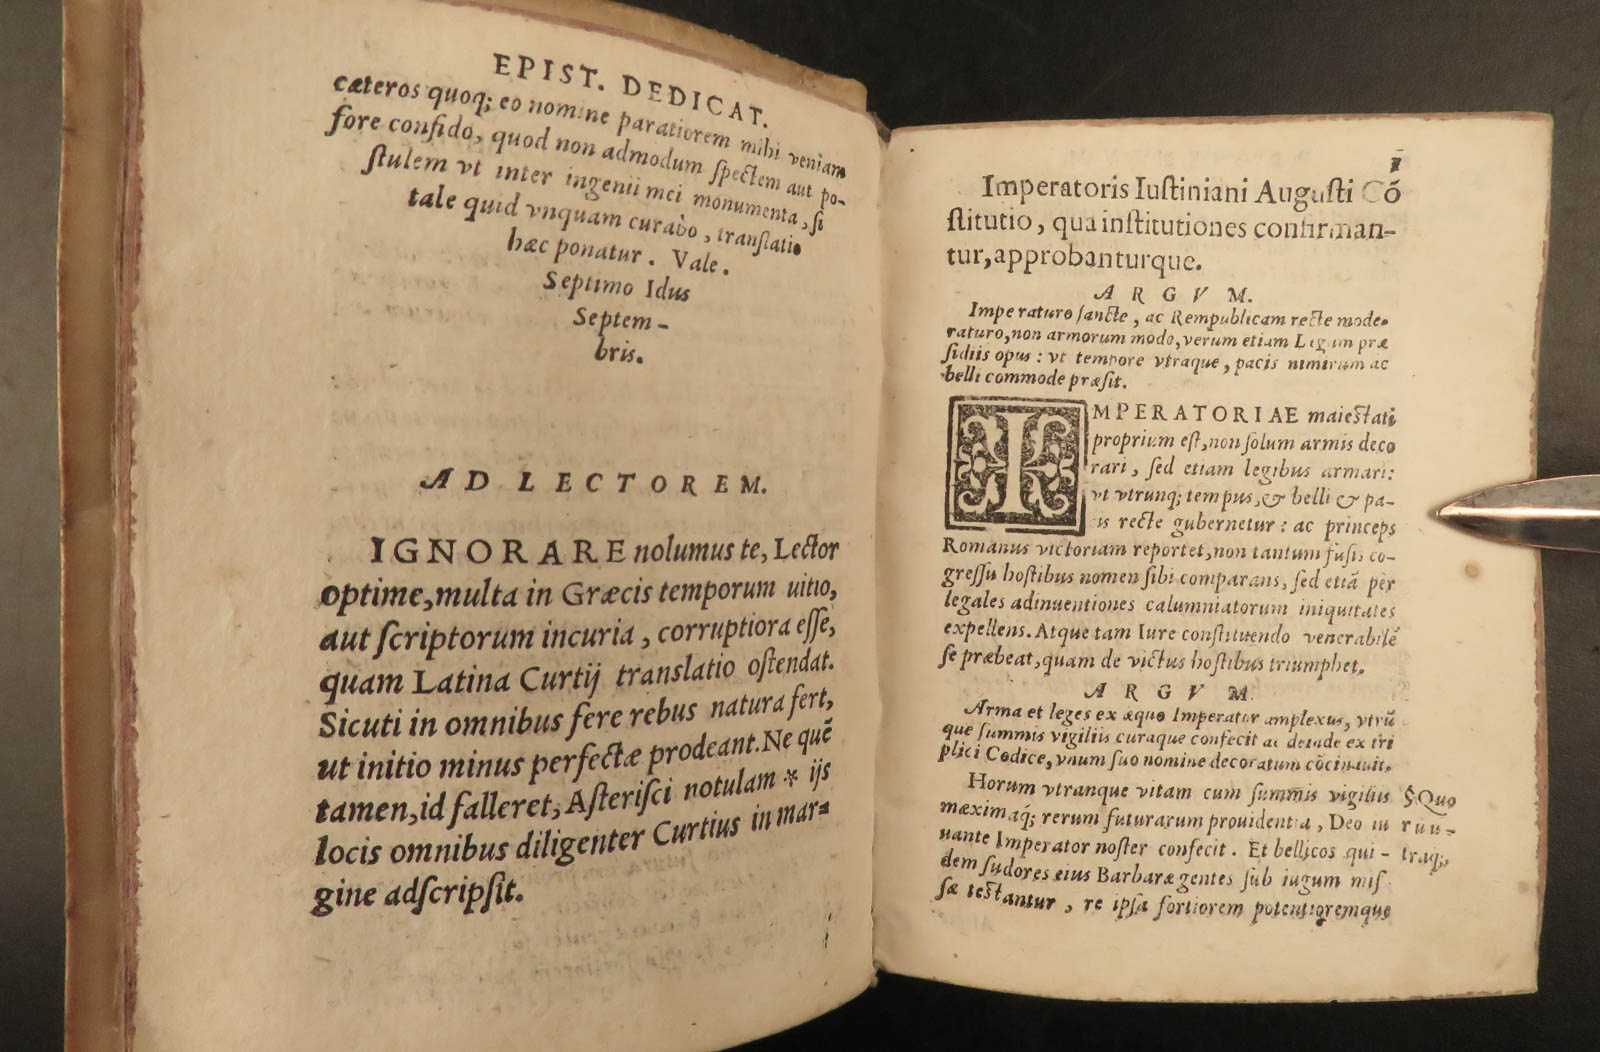 EPIST. DEDICAT.
cæteros quoq; eo nomine paratiorem mihi veniam
fore confido, quod non admodum spectem aut po-
stulem vt inter ingenii mei monumenta, si
tale quid vnquam curabo, translatio
hæc ponatur. Vale.
Septimo Idus
Septem-
bris.
AD LECTOREM.
IGNORARE nolumus te, Lector
optime, multa in Græcis temporum uitio,
aut scriptorum incuria, corruptiora esse,
quam Latina Curtij translatio ostendat.
Sicuti in omnibus fere rebus natura fert,
ut initio minus perfectæ prodeant. Ne quẽ
tamen, id falleret, Asterisci notulam * ijs
locis omnibus diligenter Curtius in mar-
gine adscripsit.
1
Imperatoris Iustiniani Augusti Cõ
stitutio, qua institutiones confirman-
tur, approbanturque.
ARGVM.
Imperaturo sancte, ac Rempublicam recte mode-
raturo, non armorum modo, verum etiam Legum præ
sidiis opus: vt tempore vtraque, pacis nimirum ac
belli commode præsit.
IMPERATORIAE maiestati
proprium est, non solum armis deco
rari, sed etiam legibus armari:
vt vtrunq; tempus, & belli & pa-
cis recte gubernetur: ac princeps
Romanus victoriam reportet, non tantum fusis co-
gressu hostibus nomen sibi comparans, sed etiã per
legales adinuentiones calumniatorum iniquitates
expellens. Atque tam Iure constituendo venerabilẽ
se præbeat, quam de victus hostibus triumphet.
ARGVM.
Arma et leges ex æquo Imperator amplexus, vtrũ
que summis vigiliis curaque confecit ac deinde ex tri
plici Codice, vnum suo nomine decoratum cõcinauit.
Horum vtranque vitam cum summis vigiliis
maximaq; rerum futurarum prouidentia, Deo iu
uante Imperator noster confecit. Et bellicos qui-
dem sudores eius Barbaræ gentes sub iugum mis
sæ testantur, re ipsa fortiorem potentioremque
§. Quo
rũu-
traq;.